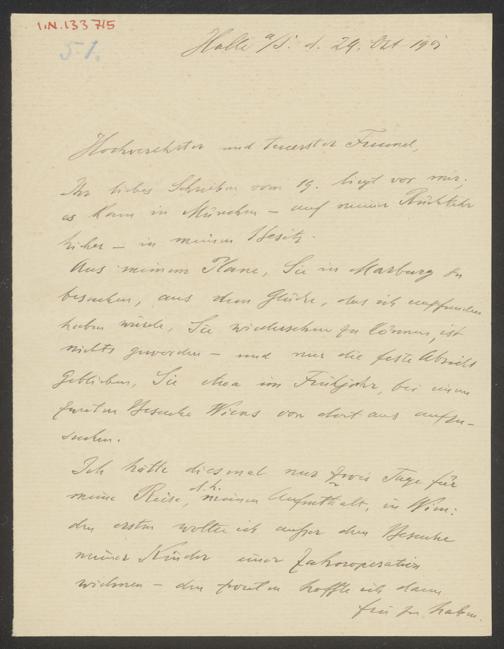 I.N. 133 715
51.
Halle a/S. d. 29. Okt 190
Hochverehrter und teuerster Freund,
Ihr liebes Schreiben vom 19. liegt vor mir;
es kam in München – auf meiner Rückkehr
hieher – in meinen Besitz.
Aus meinem Plane, Sie in Marburg zu
besuchen, aus dem Glücke, das ich empfunden
haben würde, Sie wiedersehen zu können, ist
nichts geworden – und nur die feste Absicht
geblieben, Sie etwa im Frühjahr, bei einem
zweiten Besuche Wiens von dort aus aufzu-
suchen.
Ich hatte diesmal nur zwei Tage für
meine Reise, d.h. meinen Aufenthalt, in Wien:
den ersten wollte ich außer dem Besuche
meiner Kinder einer Zahnoperation
widmen – den zweiten hoffte ich dann
frei zu haben.